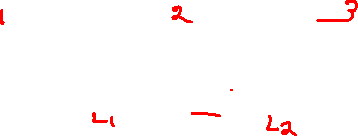 1 2 3
L1 - L2